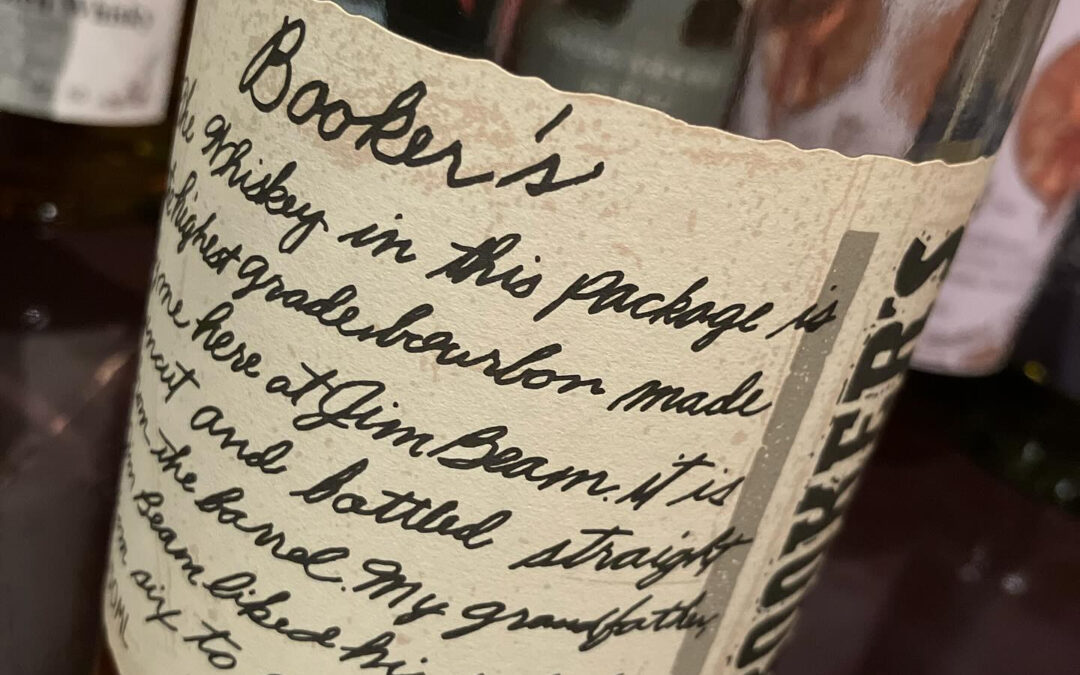 Booker's
the Whiskey in this package is
highest grade bourbon made
me here at Jim Beam. it is
uncut and bottled straight
the barrel. My grandfather,
Beam liked his
six to
BOOKER'S